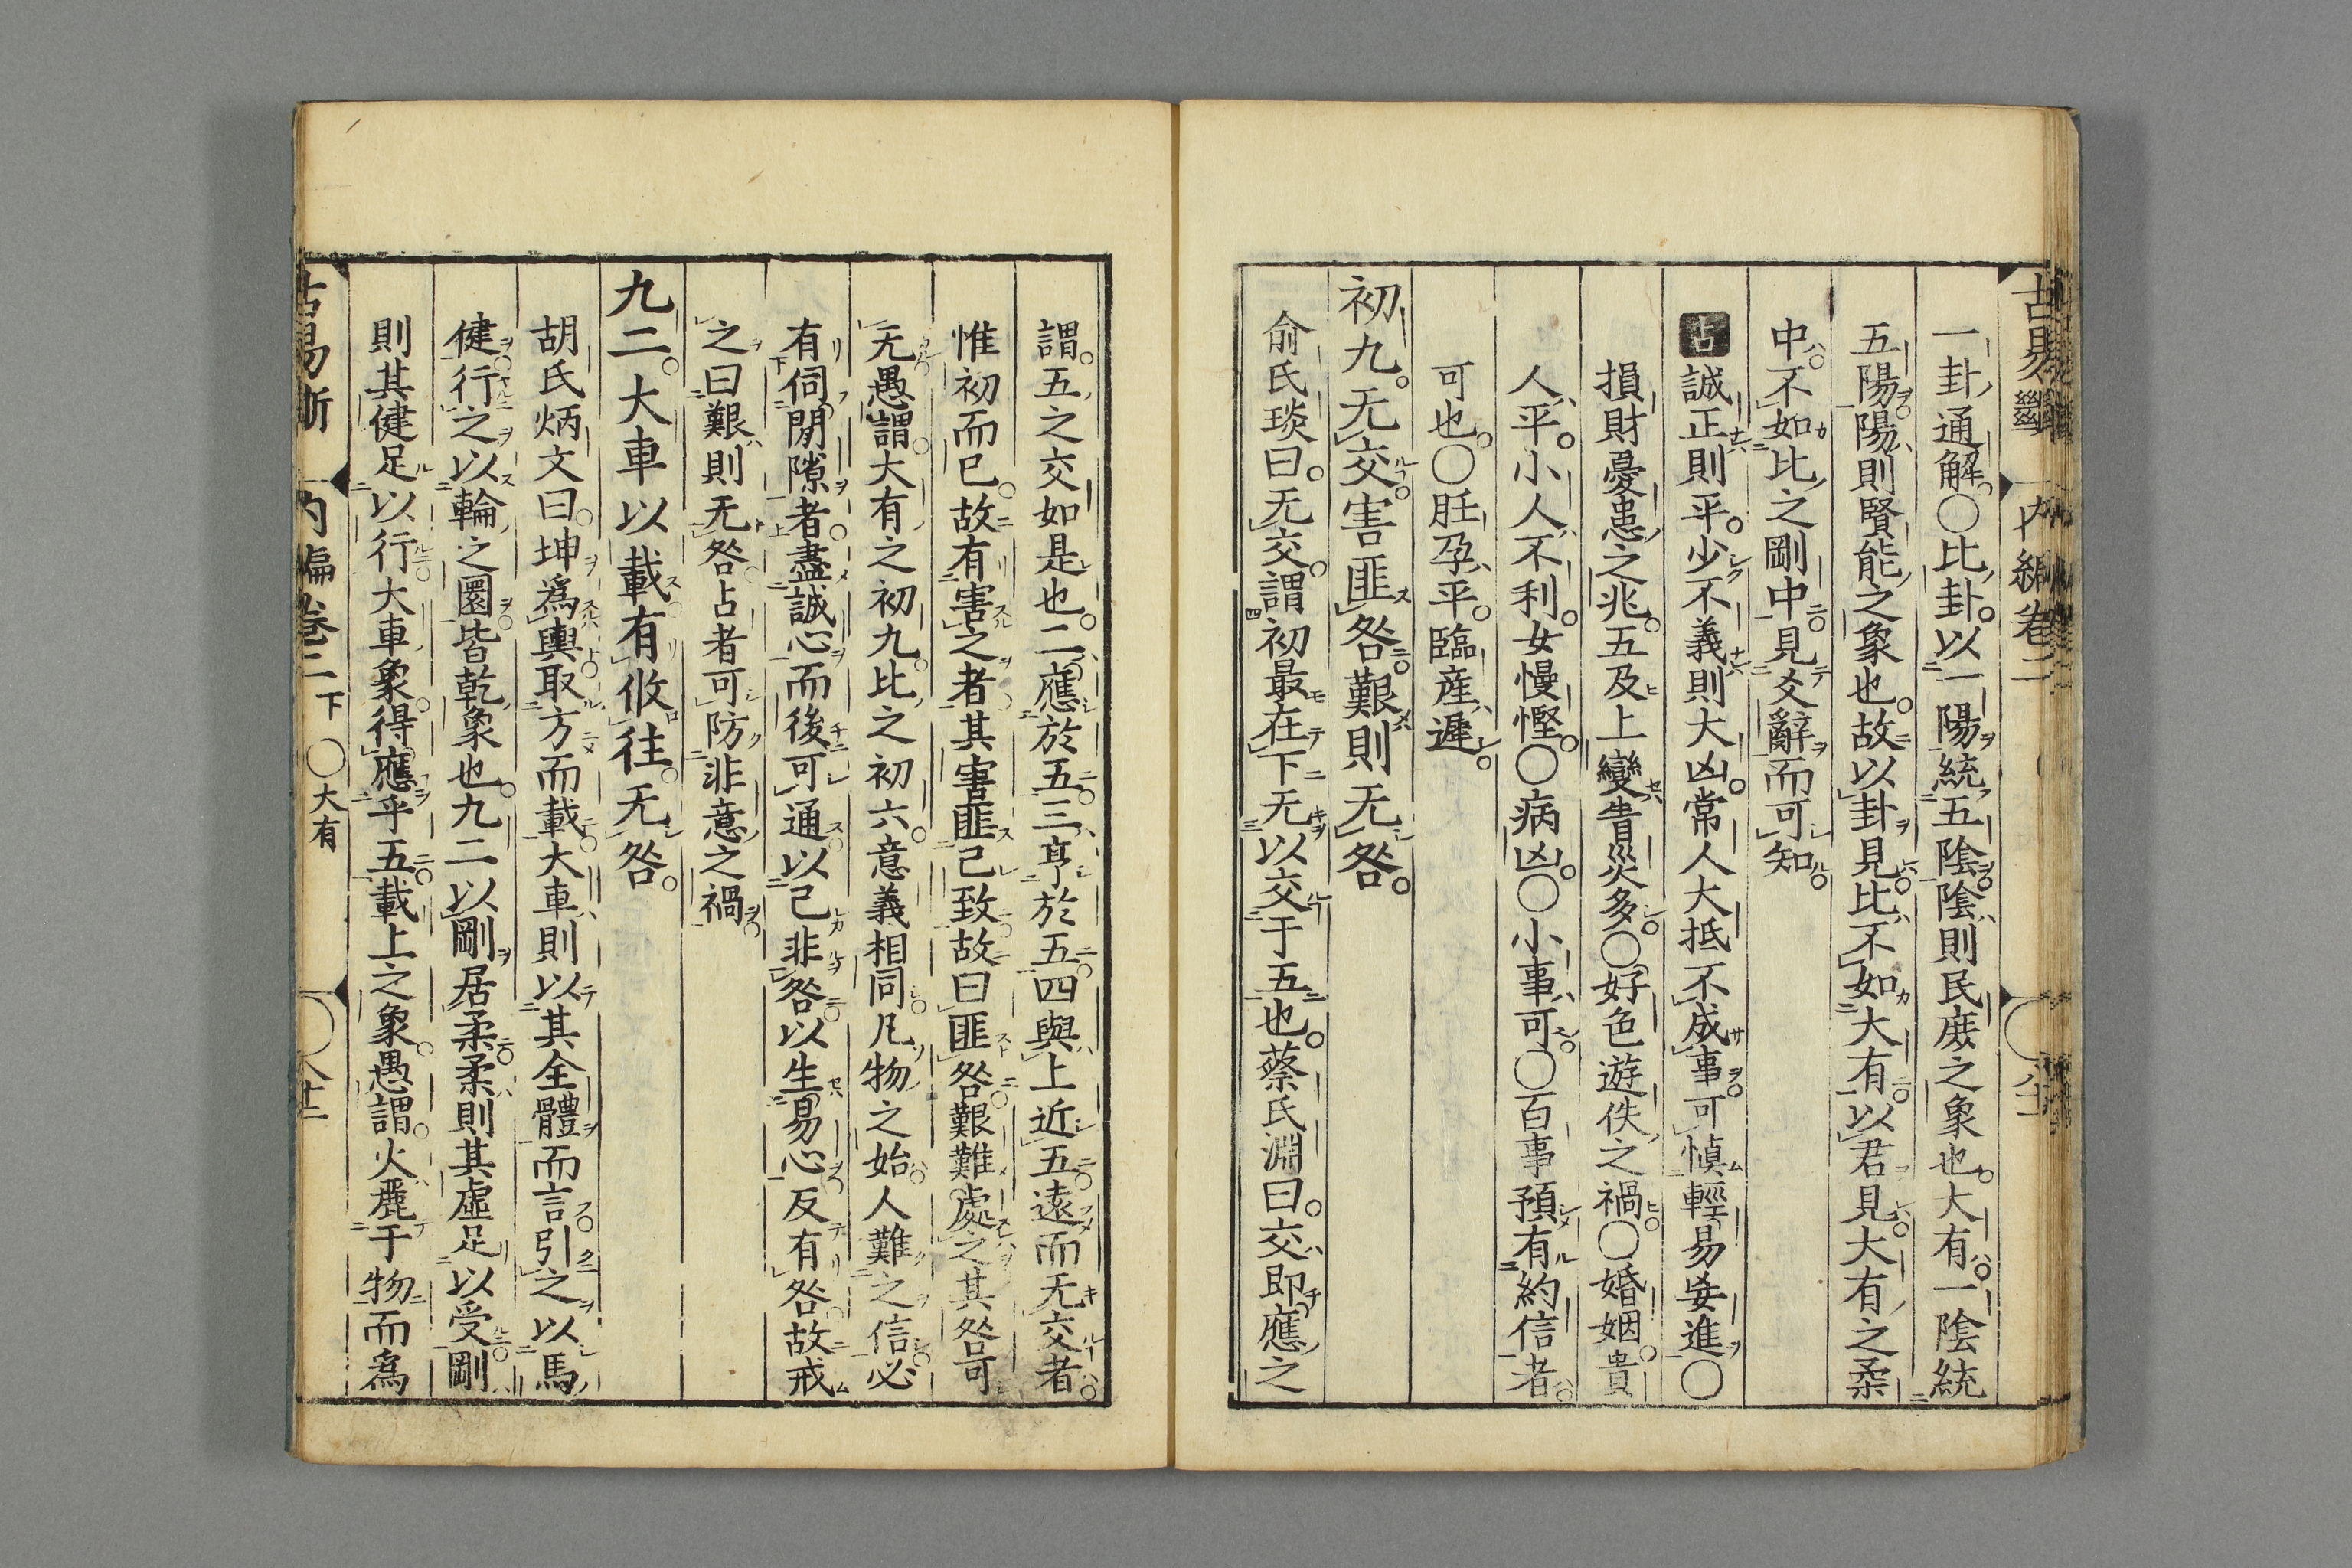 一卦通解○比卦以一陽統五陰陰則民庶之象也大有一陰統
五陽陽則賢能之象也故以卦見比不如大有以君見大有之柔
中不如比之剛中見爻辭而可知
占誠正則平少不義則大凶常人大抵不成事可愼輕易妄進○
損財憂患之兆五及上變眚災多○好色遊佚之禍○婚姻貴
人平小人不利女慢慳○病凶○小事可○百事預有約信者
可也○胎孕平臨産遲
初九无交害匪咎艱則无咎
俞氏琰曰无交謂初最在下无以交于五也蔡氏淵曰交即應之
謂五之交如是也二應於五三亨於五四與上近五遠而无交者
惟初而已故有害之者其害匪己致故曰匪咎艱難處之其咎可
无愚謂大有之初九比之初六意義相同凡物之始人難之信必
有伺閒隙者盡誠心而後可通以己非咎以生易心反有咎故戒
之曰艱則无咎占者可防非意之禍
九二大車以載有攸往无咎
胡氏炳文曰坤爲輿取方而載大車則以其全體而言引之以馬
健行之以輪之圜皆乾象也九二以剛居柔柔則其虛足以受剛
則其健足以行大車象得應乎五載上之象愚謂火麗于物而爲
古易斷 内編卷二下 ○大有